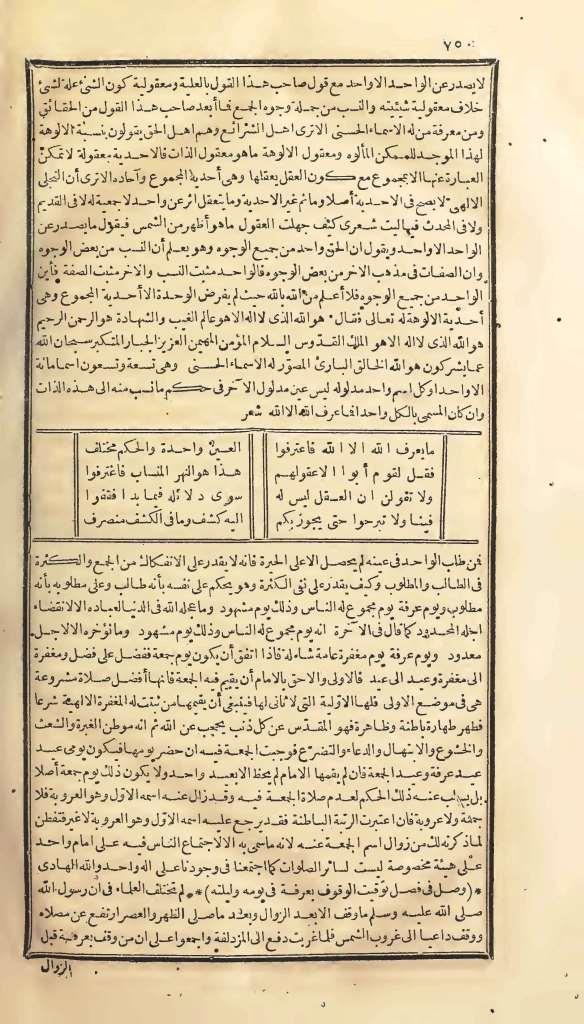 ٧٥٠
لا يصدر عن الواحد الا واحد مع قول صاحب هذا القول بالعلية ومعقولية كون الشئ علة لشئ
خلاف معقولية شيئيته والنسب من جملة وجوه الجمع فما أبعد صاحب هذا القول من الحقائق
ومن معرفة من له الاسماء الحسنى الاترى اهل الشرائع وهم اهل الحق يقولون بنسبة الالوهة
لهذا الموجد للممكن المألوه ومعقول الالوهة ماهو معقول الذات فالاحدية معقولة لا تتمكن
العبارة عنها الا بمجموع مع كون العقل يعقلها وهى أحدية المجموع وآحاده الاترى أن التجلى
الالهى لا يصح فى الاحدية أصلا وما ثم غير الاحدية وما يتعقل اثر عن واحد لا جمعية له لا فى القديم
ولا فى المحدث فياليت شعرى كيف جهلت العقول ما هو أظهر من الشمس فيقول ما يصدر عن
الواحد الا واحد ويقول ان الحق واحد من جميع الوجوه وهو يعلم أن النسب من بعض الوجوه
وان الصفات فى مذهب الآخر من بعض الوجوه فالواحد مثبت النسب والآخر مثبت الصفة فأين
الواحد من جميع الوجوه فلا أعلم من الله بالله حيث لم يفرض الوحدة الا أحدية المجموع وهى
أحدية الالوهة له تعالى فقال هو الله الذى لا اله الا هو عالم الغيب والشهادة هو الرحمن الرحيم
هو الله الذى لا اله الا هو الملك القدوس السلام المؤمن المهيمن العزيز الجبار المتكبر سبحان الله
عما يشركون هو الله الخالق البارئ المصور له الاسماء الحسنى وهى تسعة وتسعون اسما مائة
الا واحدا وكل اسم واحد مدلوله ليس عين مدلول الآخر فى حكم ما نسب منه الى هذه الذات
وان كان المسمى بالكل واحدا فما عرف الله الا الله شعر
ما يعرف الله الا الله فاعترفوا العين واحدة والحكم مختلف
فقل لقوم أبوا الا عقولهم هذا هو النهر المنساب فاغترفوا
ولا تقولن ان العقل ليس له سوى دلائله فيما بدا فقفوا
فينا ولا تبرحوا حتى يجوز بكم اليه كشف وما فى الكشف منصرف
فمن طلب الواحد فى عينه لم يحصل الا على الحيرة فانه لا يقدر على الانفكاك من الجمع والكثرة
فى الطالب والمطلوب وكيف يقدر على نفى الكثرة وهو يحكم على نفسه بأنه طالب وعلى مطلوبه بأنه
مطلوب ويوم عرفة يوم مجموع له الناس وذلك يوم مشهود وما عجله الله فى الدنيا لعباده الا لانقضاء
اجله المحدود كما قال فى الآخرة انه يوم مجموع له الناس وذلك يوم مشهود وما نؤخره الا لاجل
معدود ويوم عرفة يوم مغفرة عامة شاملة فاذا اتفق أن يكون يوم جمعة ففضل على فضل ومغفرة
الى مغفرة وعيد الى عيد فالاولى والاحق بالامام أن يقيم فيه الجمعة فانها أفضل صلاة مشروعة
هى فى موضع الاولى فلها الاولية التى لا ثانى لها فينبغى أن يقيمها من ثبتت له المغفرة الالهية شرعا
فطهر طهارة باطنة وظاهرة فهو المقدس عن كل ذنب يحجب عن الله ثم انه موطن الغبرة والشعث
والخشوع والابتهال والدعاء والتضرع فوجبت الجمعة فيه ان حضر يومها فيكون يومى عيد
عيد عرفة وعيد الجمعة فان لم يقمها الامام لم يحظ الا بعيد واحد ولا يكون ذلك يوم جمعة أصلا
بل يسلب عنه ذلك الحكم لعدم صلاة الجمعة فيه وقد زال عنه اسمه الاول وهو العروبة فلا
جمعة ولا عروبة فان اعتبرت الرتبة الباطنة فقد يرجع عليه اسمه الاول وهو العروبة لا غير فتفطن
لما ذكرته لك من زوال اسم الجمعة عنه لانه ما سمى به الا لاجتماع الناس فيه على امام واحد
على هيئة مخصوصة ليست لسائر الصلوات كما اجتمعنا فى وجودنا على اله واحد والله الهادى
*(وصل فى فصل توقيت الوقوف بعرفة فى يومه وليلته)* لم تختلف العلماء فى أن رسول الله
صلى الله عليه وسلم ما وقف الا بعد الزوال وبعد ما صلى الظهر والعصر ارتفع عن مصلاه
ووقف داعيا الى غروب الشمس فلما غربت دفع الى المزدلفة واجمعوا على ان من وقف بعرفة قبل
الزوال